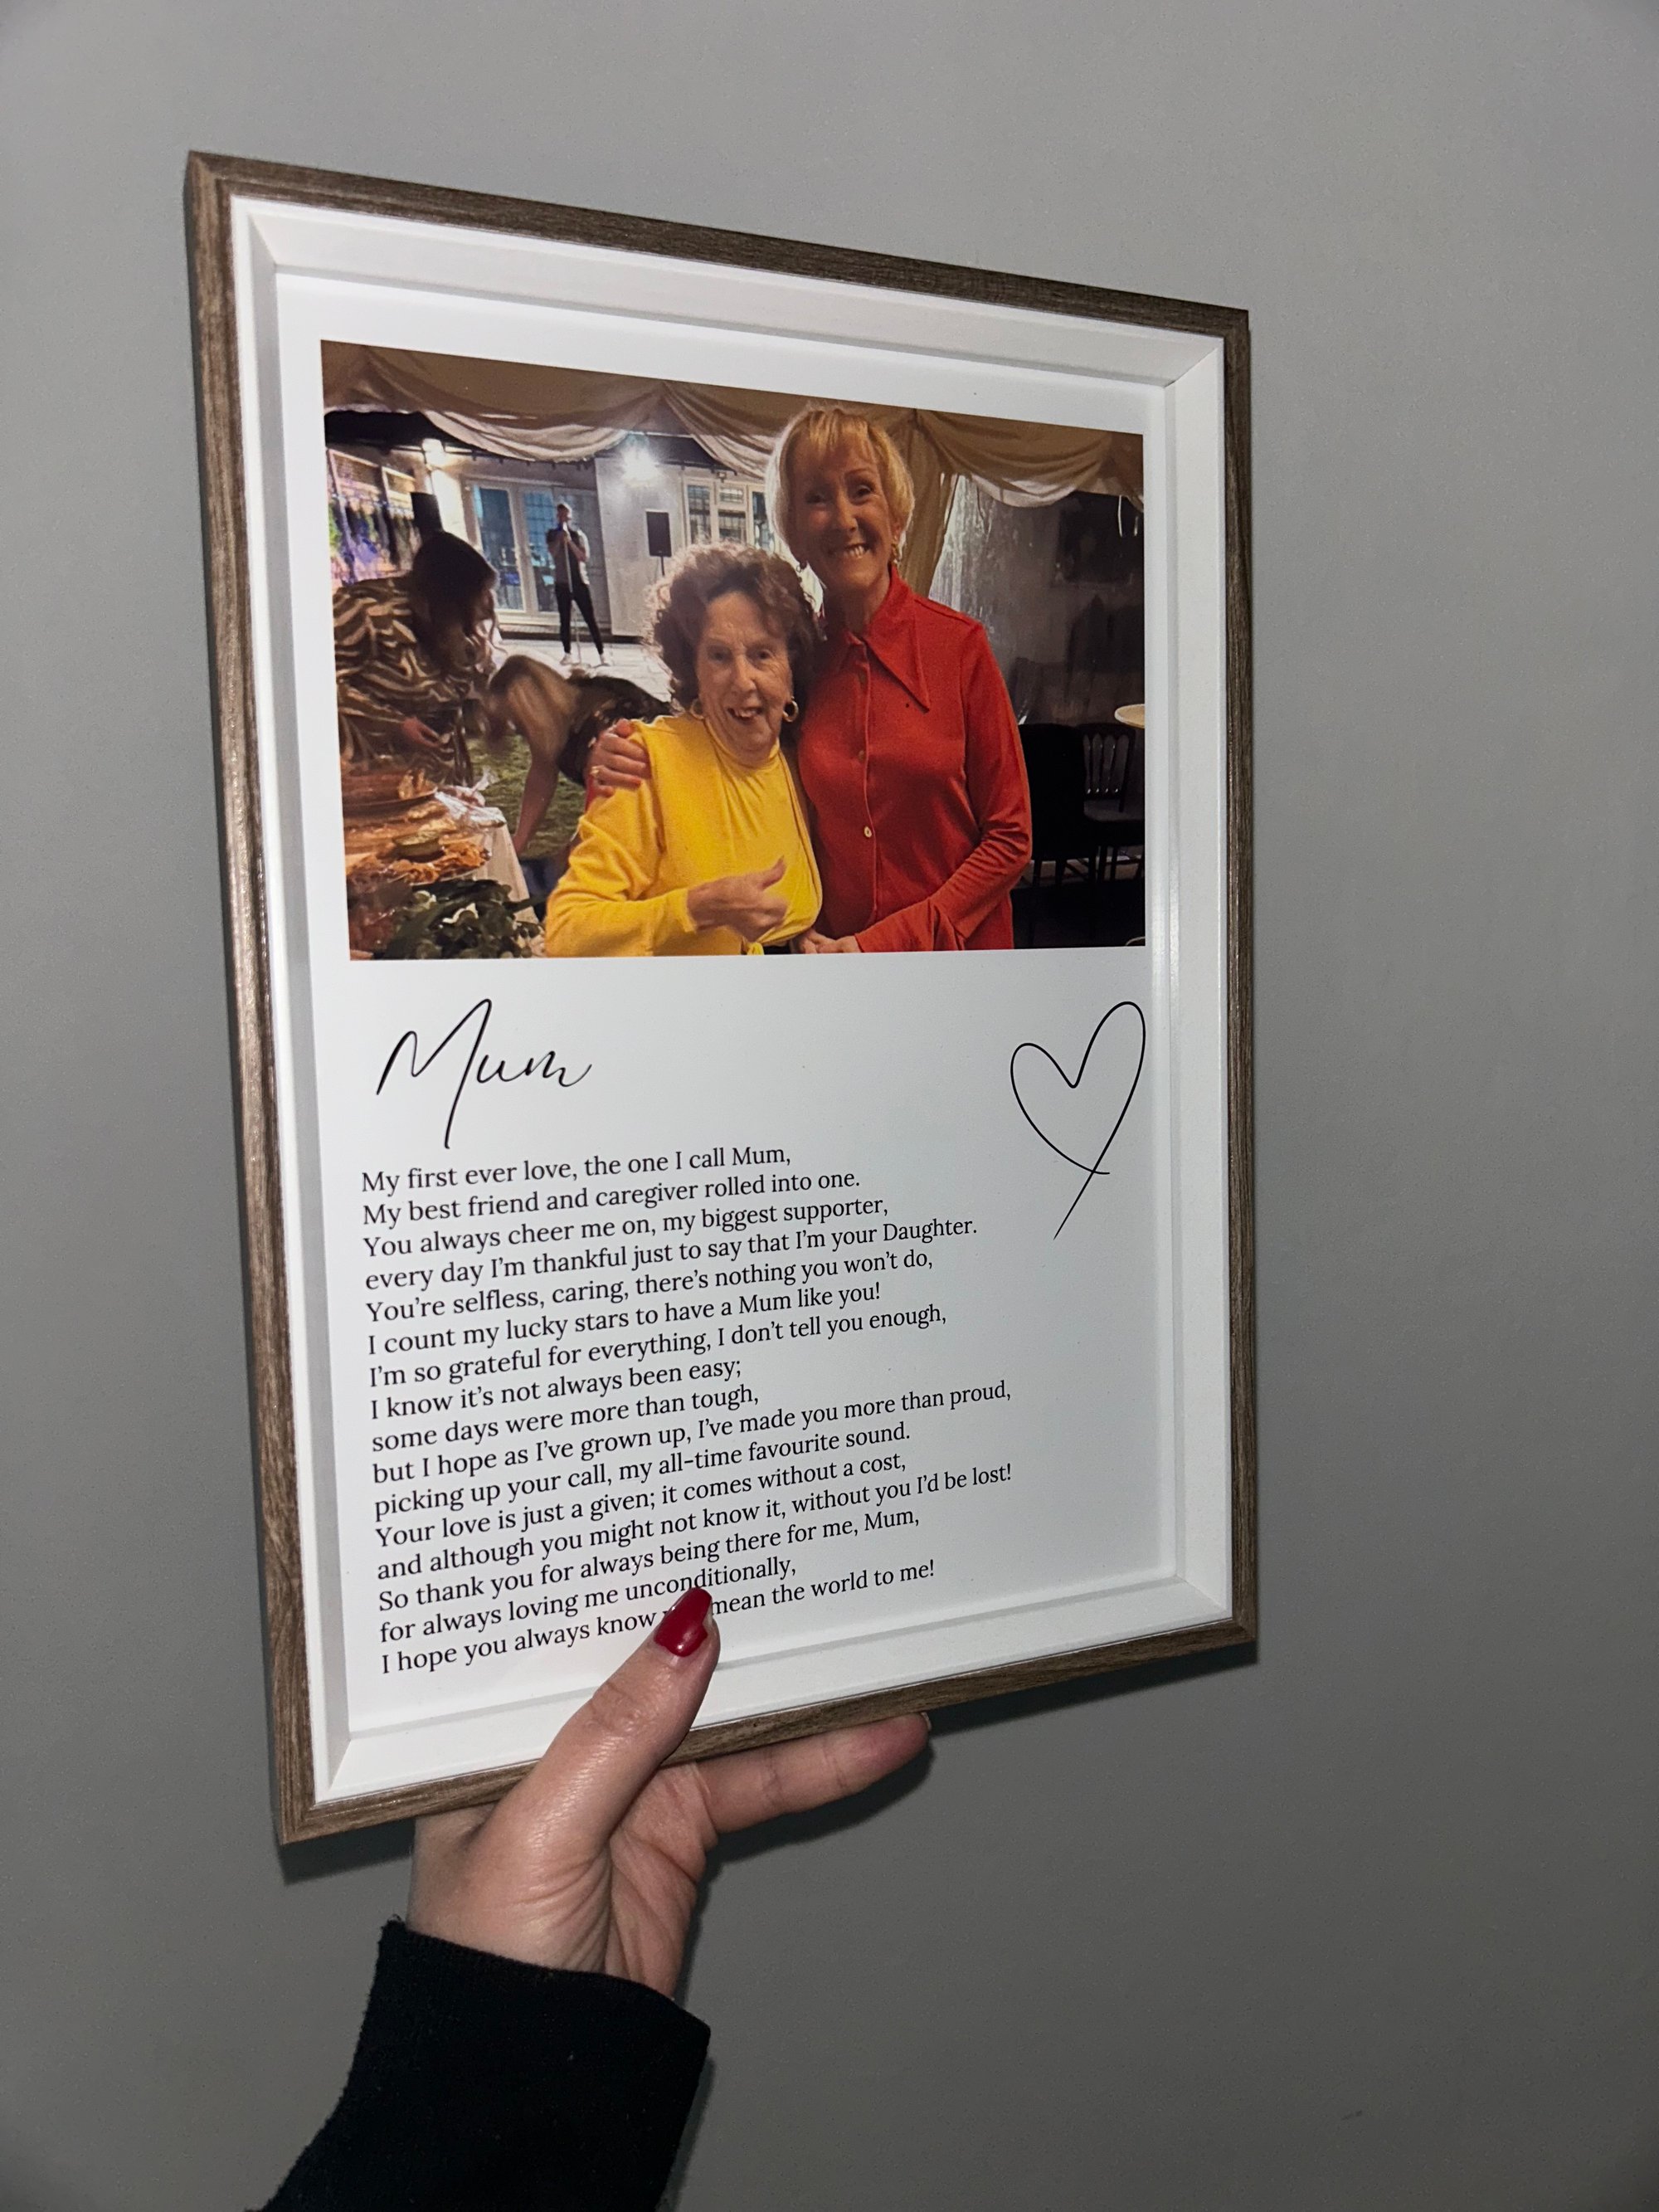 Mum
My first ever love, the one I call Mum,
My best friend and caregiver rolled into one.
You always cheer me on, my biggest supporter,
every day I'm thankful just to say that I'm your Daughter.
You're selfless, caring, there's nothing you won't do,
I count my lucky stars to have a Mum like you!
I'm so grateful for everything, I don't tell you enough,
I know it's not always been easy;
some days were more than tough,
but I hope as I've grown up, I've made you more than proud,
picking up your call, my all-time favourite sound.
Your love is just a given; it comes without a cost,
and although you might not know it, without you I'd be lost!
So thank you for always being there for me, Mum,
for always loving me unconditionally,
I hope you always know mean the world to me!